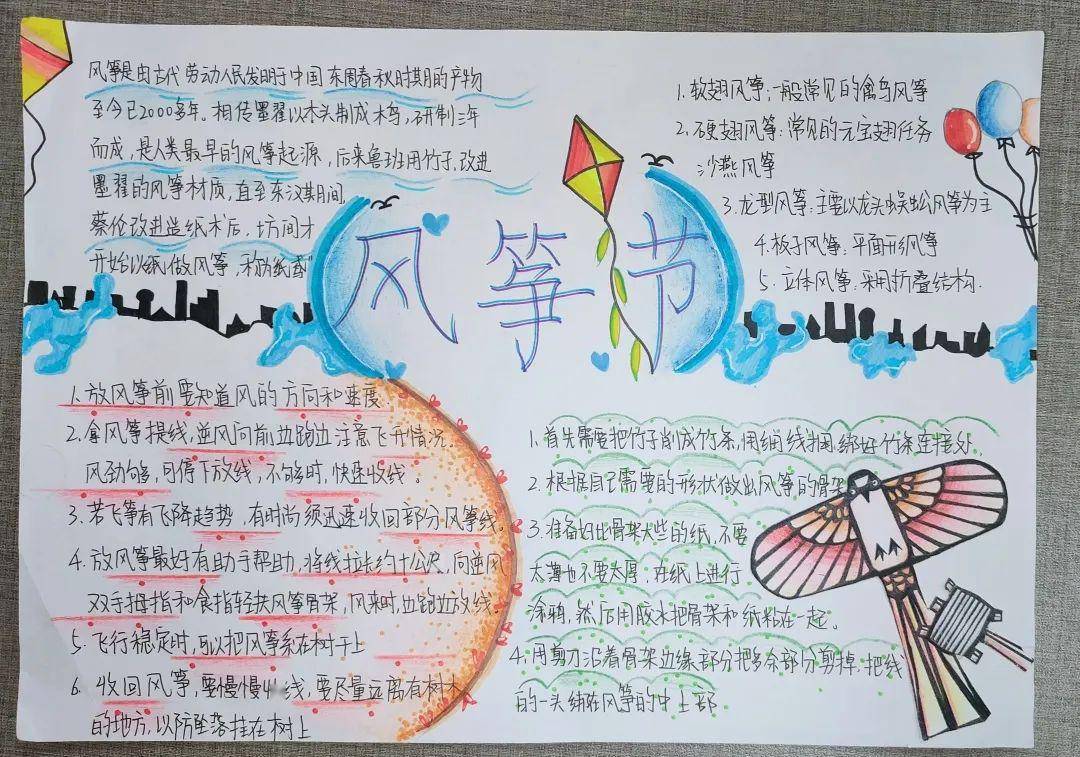 风筝是由古代劳动人民发明于中国东周春秋时期的产物
至今已2000多年。相传墨翟以木头制成木鸟,研制三年
而成,是人类最早的风筝起源,后来鲁班用竹子,改进
墨翟的风筝材质,直至东汉期间,
蔡伦改进造纸术后,坊间才
开始以纸做风筝,称为纸鸢"
风筝节
1.软翅风筝:一般常见的禽鸟风筝
2.硬翅风筝:常见的元宝翅任务
沙燕风筝
3.龙型风筝:主要以龙头蜈蚣风筝为主
4.板子风筝:平面形风筝
5.立体风筝:采用折叠结构.
1.放风筝前要知道风的方向和速度.
2.拿风筝提线,逆风向前边跑边注意飞升情况.
风劲够,可停下放线,不够时,快速收线。
3.若飞筝有飞降趋势,有时尚须迅速收回部分风筝线。
4.放风筝最好有助手帮助,将线拉长约十公尺,向逆风
双手拇指和食指轻扶风筝骨架,风来时,边跑边放线。
5.飞行稳定时,可以把风筝系在树干上
6.收回风筝,要慢慢收线,要尽量远离有树木
的地方,以防坠落挂在树上
1.首先需要把竹子削成竹条,用细线捆绑好竹条连接处.
2.根据自己需要的形状做出风筝的骨架
3.准备好比骨架大些的纸,不要
太薄也不要太厚,在纸上进行
涂鸦,然后用胶水把骨架和纸粘在一起。
4.用剪刀沿着骨架边缘部分把多余部分剪掉,把线
的一头绑在风筝的中上部